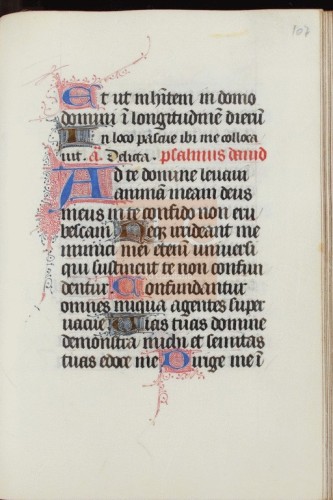 107
Et ut inhitem in domo
domini ī longitudinē dierū
In loco pascue ibi me colloca
uit. a. Delicta. psalmus dauid
Ad te domine leuaui
animam meam deus
meus in te confido non eru
bescam Neqȝ irrideant me
inimici mei etenī uniuersi
qui sustinent te non confun
dentur Confundantur
omnes iniqua agentes super
uacue Uias tuas domine
demonstra michi et semitas
tuas edoce me Dirige me ī